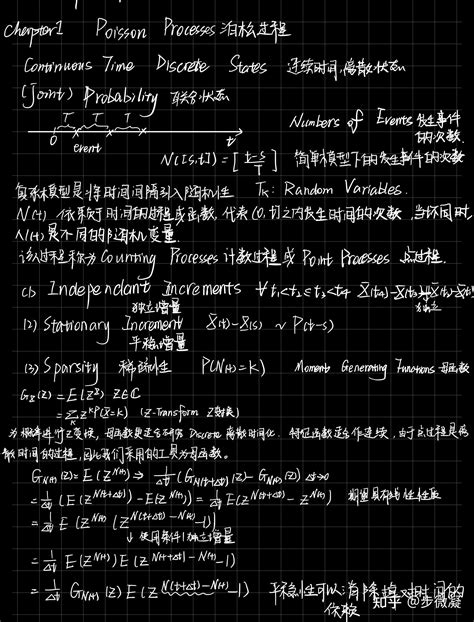 Chapter1 Poisson Processes 泊松过程
Continuous Time Discrete States 连续时间,离散状态
(joint) Probability 联合状态
T T T
0 t
event
Numbers of Events 发生事件的次数
N([s,t]) = [t-s/T] 简单模型下的发生事件的次数
复杂模型是将时间间隔引入随机性 Tk: Random Variables.
N(t) 依赖于时间的过程或函数, 代表(0,t]之内发生时间的次数. 当t不同时,
N(t)是不同的随机变量.
该过程称为 Counting Processes 计数过程 或 Point Processes 点过程.
(1) Independant Increments ∀t₁<t₂≤t₃<t₄ X(t₄)-X(t₃)
独立增量
(2) Stationary Increment X(t)-X(s) ~ P(t-s)
平稳增量
(3) Sparsity 稀疏性 P(N(t)=k) Moment Generating Functions 母函数
G_X(z) = E(z^X) z∈C
= Σ_k z^k P(X=k) (Z-Transform Z变换)
为概率进行Z变换, 母函数更适合研究 Discrete 离散时间化. 特征函数适合作连续, 由于过程是离
散时间的过程, 因此我们采用的工具为母函数.
G_N(t)(z) = E(z^N(t)) → 1/Δt (G_N(t+Δt)(z) - G_N(t)(z)) Δt→0
= 1/Δt (E(z^N(t+Δt)) - E(z^N(t))) = 1/Δt E(z^N(t+Δt) - z^N(t)) 期望具有线性性质
= 1/Δt E(z^N(t) (z^N(t+Δt)-N(t) - 1))
↓ 使用条件1独立增量
= 1/Δt E(z^N(t)) E(z^N(t+Δt)-N(t) - 1)
= 1/Δt G_N(t)(z) E(z^N(t+Δt)-N(t) - 1) 平稳性可以消除掉对时间的
依赖
知乎 @步微凝